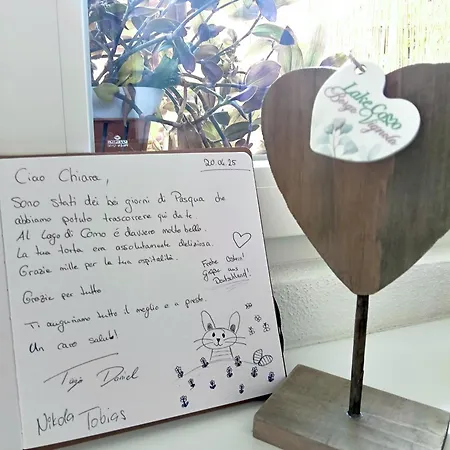 20.04.25
Ciao Chiara,
Sono stati dei bei giorni di Pasqua che
abbiamo potuto trascorrere qui da te.
Al Lago di Como é davvero molto bello.
La tua torta era assolutamente deliziosa.
Grazie mille per la tua ospitalità.
Frohe Ostern!
Grüße aus
Deutschland!
Grazie per tutto
Ti auguriamo tutto il meglio e a presto.
Un caro saluto!
Daniel
Nikola Tobias
Lake Como